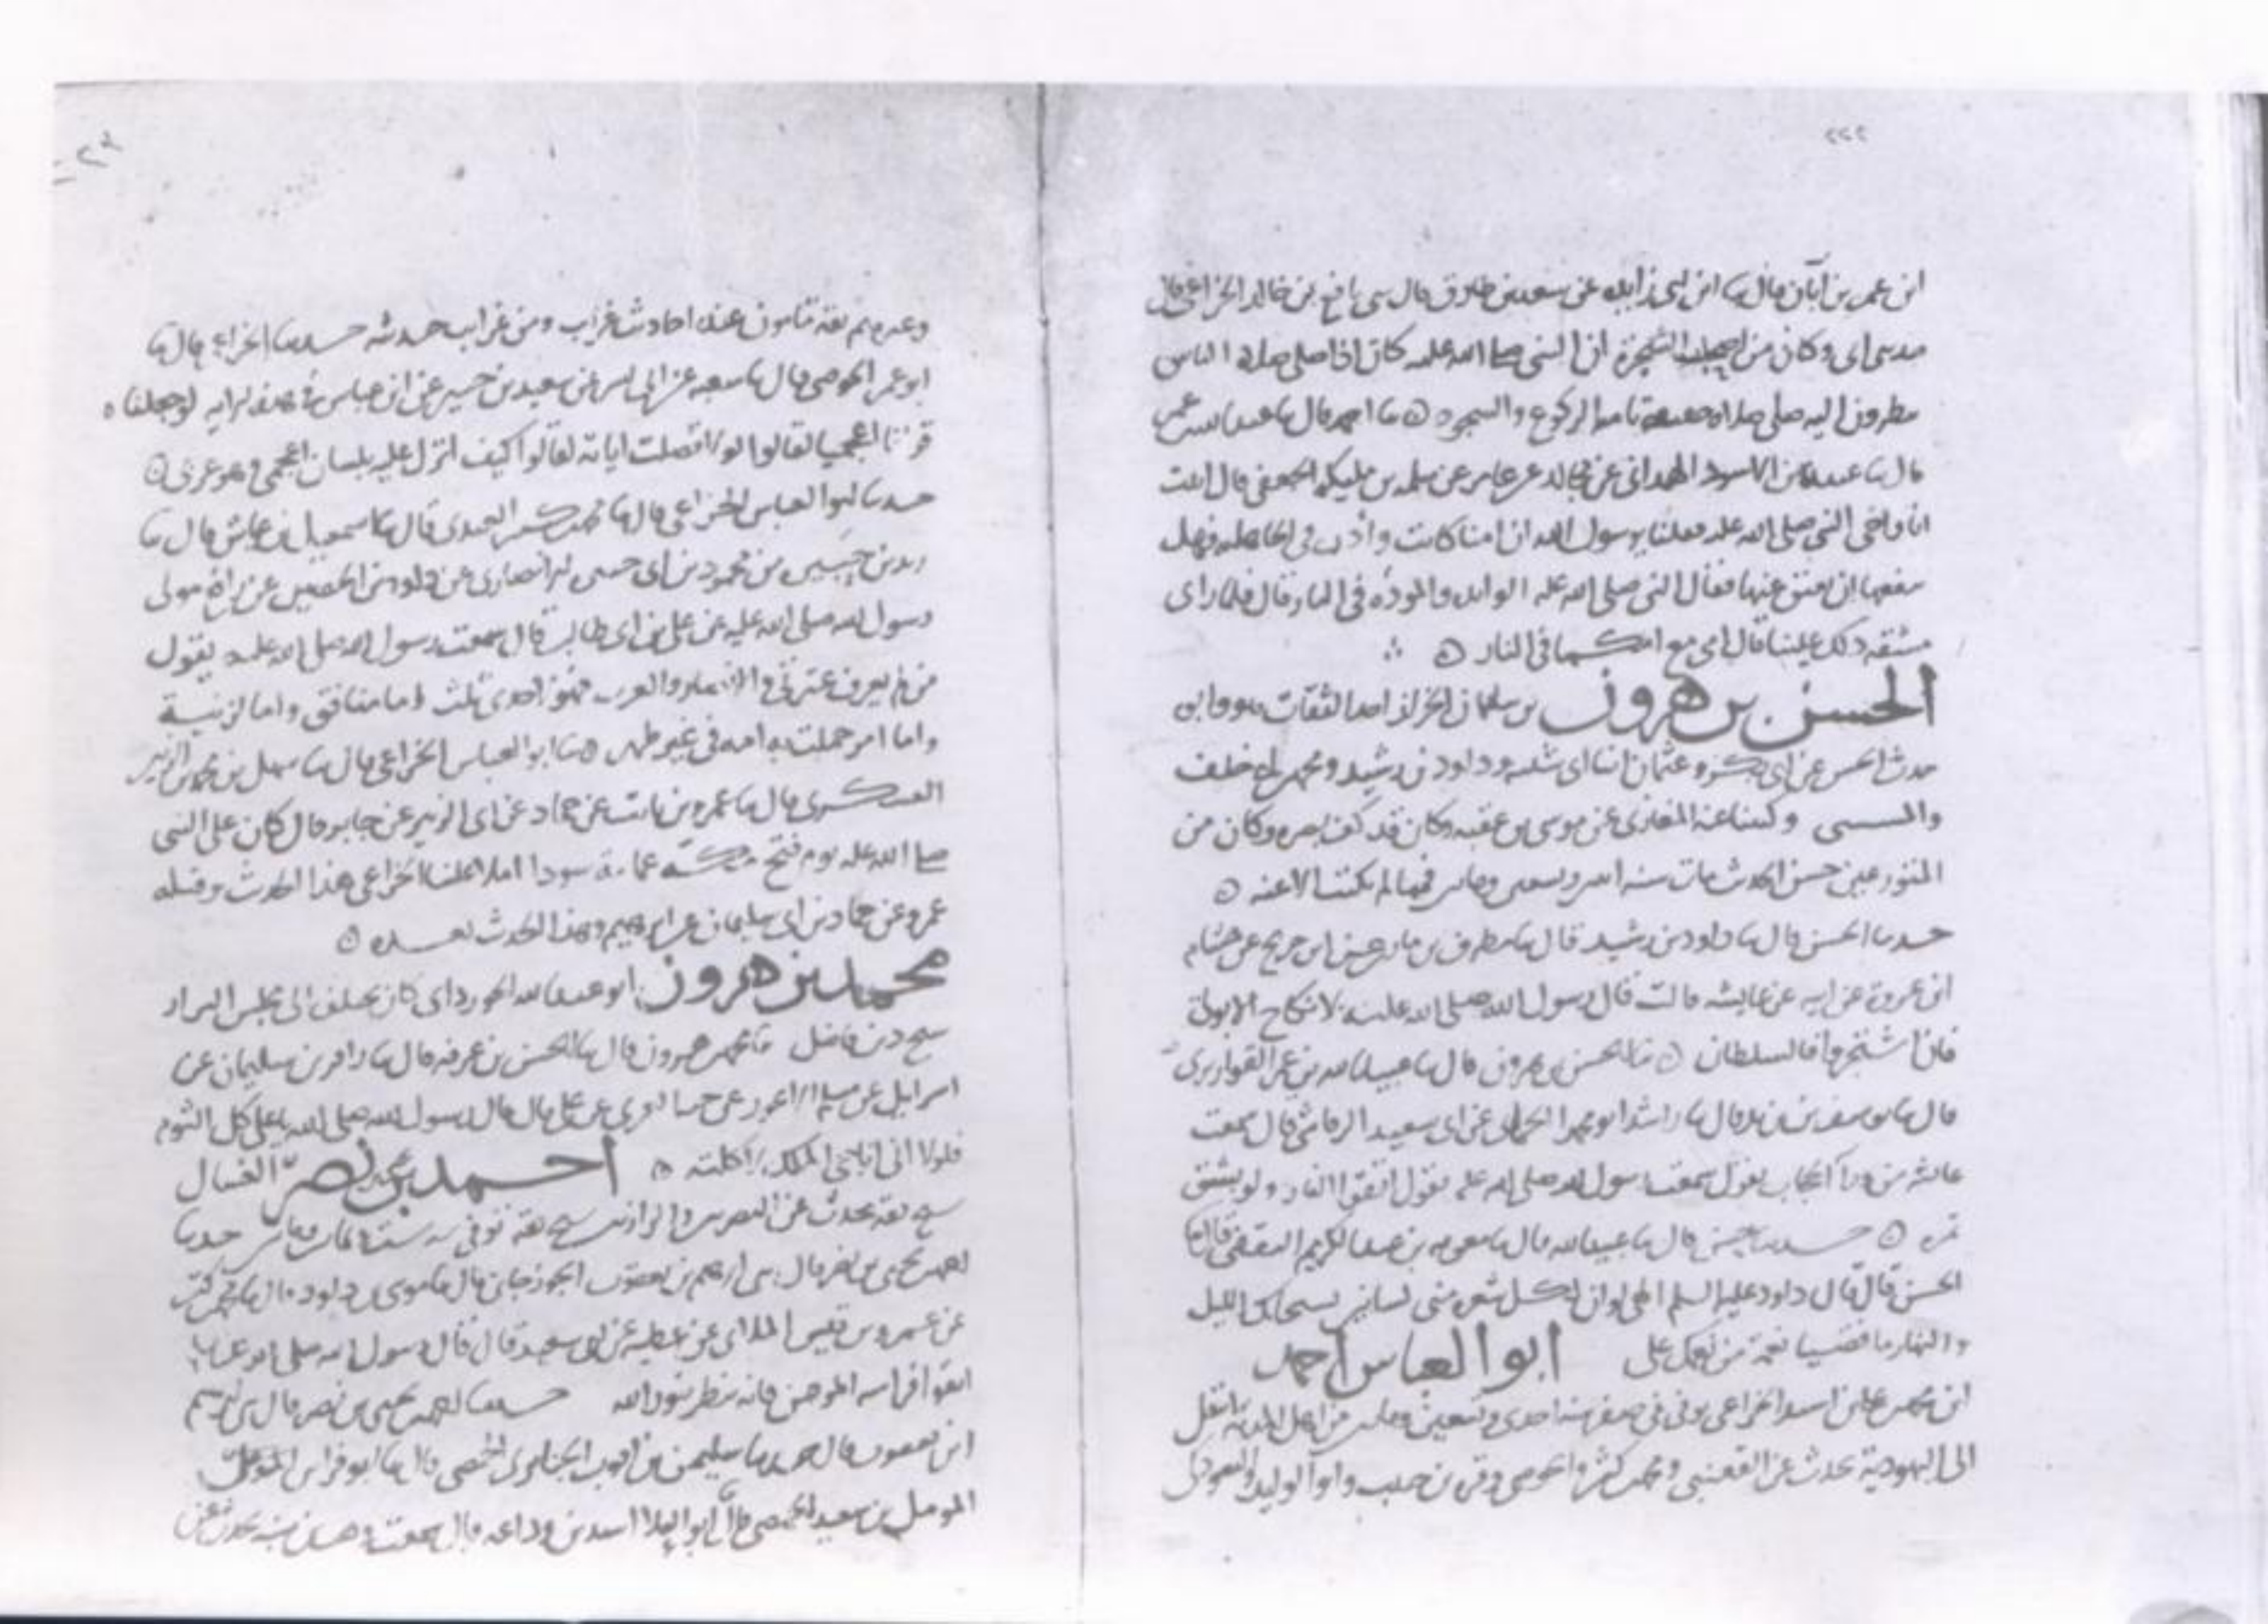 ٢٢٢
ابن عمر بن أبان قال ثنا ابن ابي زايده عن سعد بن طارق قال نافع بن خالد الخزاعي قال
ابي وكان من اصحاب الشجرة ان النبي صلى الله عليه كان اذا صلى صلاة الناس
ينظرون اليه صلى صلاة خفيفة تامة الركوع والسجود ○ ثنا قال ثنا عبد الله بن عمر
قال ثنا عبيدة بن الاسود الهمداني عن مجالد عن عامر عن سلمه بن مليكه الجعفي قال اتيت
انا واخي النبي صلى الله عليه فقلنا يرسول الله ان امنا كانت وأدت في الجاهليه فهل
ينفعها ان نعتق عنها فقال النبي صلى الله عليه الوايده والموؤده في النار قال فلما راى
مشقه ذلك علينا قال امي مع امكما في النار ○
الحسن بن هرون بن سليمان الخراز احد الثقات هو وابوه
حدث الحسن عن ابي بكر وعثمان ابنا ابي شيبه وداود بن رشيد ومحمد بن خلف
والمسيبي وكتبنا عنه المغازي عن موسى بن عقبه وكان قد كف بصره وكان من
المتورعين حسن الحديث مات سنه وتسعين فيما لم نكتب الا عنه ○
حدثنا الحسن قال ثنا داود بن رشيد قال ثنا مطرف بن مازن عن ابن جريج عن هشام
ابن عروة عن ابيه عن عايشه قالت قال رسول الله صلى الله عليه لا نكاح الا بولي
فان اشتجروا فالسلطان ○ ثنا الحسن بن هرون قال ثنا عبيد الله بن عمر القواريري
قال ثنا يوسف بن يزيد قال ثنا راشد ابو محمد الحماني عن ابي سعيد الرقاشي قال سمعت
عائشه من ورآ الحجاب تقول سمعت رسول الله صلى الله عليه يقول اتقوا النار ولو بشق
تمره ○ حدثنا حسن قال ثنا عبيد الله قال ثنا معويه بن عبد الكريم الثقفي قال ثنا
الحسن قال قال داود عليه السلم الهي لو ان لكل شعره مني لسانين يسبحانك الليل
والنهار ما قضينا نعمة من نعمك علي ابو العباس احمد
ابن محمد بن علي بن اسيد الخزاعي توفي في صفر سنه احدى وتسعين ومايتين من اهل المدينه انتقل
الى اليهودية يحدث عن القعنبي ومحمد بن كثير والحوضي وقره بن حبيب وابو الوليد والتبوذكي
٢٢٣
وغيرهم ثقه مامون عنده احاديث غرايب ومن غرايب حديثه حدثنا الخزاعي قال ثنا
ابو عمر الحوضي قال ثنا شعبه عن ابي بشر عن سعيد بن جبير عن ابن عباس في هذه الايه لو جعلناه
قرانا اعجميا لقالوا لولا فصلت اياته لقالوا كيف انزل عليه بلسان اعجمي وهو عربي ○
حدثنا ابو العباس الخزاعي قال ثنا محمد بن كثير العبدي قال ثنا اسمعيل بن عياش قال ثنا
زيد بن جبيره بن محمود بن ابي جبيره الانصاري عن داود بن الحصين عن رافع مولى
رسول الله صلى الله عليه عن علي بن ابي طالب قال سمعت رسول الله صلى الله عليه يقول
من لم يعرف عترتي والانصار والعرب فهو لاحدى ثلث اما منافق واما لزنية
واما امر حملت به امه في غير طهر ○ ثنا ابو العباس الخزاعي قال ثنا سهل بن محمد بن الزبير
العسكري قال ثنا عمرو بن ثابت عن حماد عن ابي الزبير عن جابر قال كان على النبي
صلى الله عليه يوم فتح مكة عمامة سودا املا علينا الخزاعي هذا الحديث وقبله
عمرو عن حماد بن ابي سليمان عن ابرهيم وهذا الحديث بعده ○
محمد بن هرون ابو عبد الله الجورداني كان يختلف الى مجلس البزار
شيخ دين فاضل ثنا محمد بن هرون قال ثنا الحسن بن عرفه قال ثنا زافر بن سليمان عن
اسرايل عن مسلم الاعور عن حبه العرني عن علي قال قال رسول الله صلى الله يا علي كل الثوم
فلولا اني اناجي الملك لاكلته ○ احمد بن يحيى بن نصر الغسال
شيخ ثقه يحدث عن البصريين والرازيين شيخ ثقه توفي سنه ست وثمانين ومايتين حدثنا
احمد بن يحيى بن نصر قال ثنا ابرهيم بن يعقوب الجوزجاني قال ثنا موسى بن داود قال ثنا محمد بن كثير
عن عمرو بن قيس الملائي عن عطيه عن ابي سعيد قال قال رسول الله صلى الله عليه
اتقوا فراسه المومن فانه ينظر بنور الله حدثنا احمد بن يحيى بن نصر قال ثنا ابرهيم
ابن يعقوب قال ثنا سليمن بن ايوب الجنايري الحمصي قال ثنا ابو فراس المومل
المومل بن سعيد الحمصي قال ابو العلا اسد بن وداعه قال سمعت وهب بن منبه يحدث عن